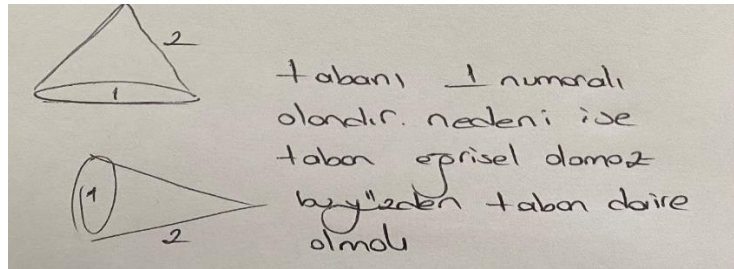 2
1
tabanı 1 numaralı
olandır. nedeni ise
taban eğrisel olamaz
bu yüzden taban daire
olmalı
1
2